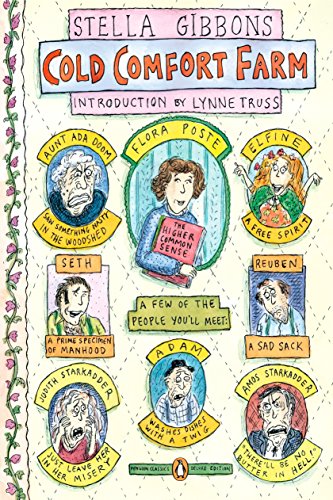 STELLA GIBBONS
COLD COMFORT FARM
INTRODUCTION BY LYNNE TRUSS
AUNT ADA DOOM
SAW SOMETHING NASTY
IN THE WOODSHED
FLORA POSTE
THE
HIGHER
COMMON
SENSE
ELFINE
A FREE SPIRIT
SETH
A PRIME SPECIMEN
OF MANHOOD
A FEW OF THE
PEOPLE YOU'LL MEET:
REUBEN
A SAD SACK
JUDITH STARKADDER
JUST LEAVE HER
IN HER MISERY
ADAM
WASHES DISHES
WITH A TWIG
AMOS STARKADDER
"THERE'LL BE NO
BUTTER IN HELL!"
PENGUIN CLASSICS
DELUXE EDITION